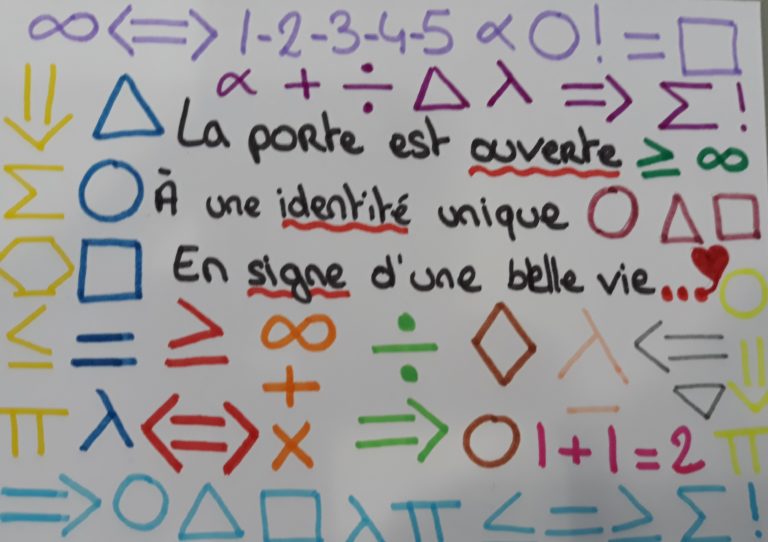 ∞ ⇔ 1-2-3-4-5 ∝ ○ ! = □
⇓ △ ∝ + ÷ △ λ ⇒ Σ !
La porte est ouverte ≥ ∞
Σ ○ À une identité unique ○ △ □
□ En signe d'une belle vie...
≤ = ≥ ∞ ÷ ◇ λ ⇐ ⇓
+ −
π λ ⇔ × ⇒ ○ 1+1=2 π
⇒ ○ △ □ λ π < = > Σ !